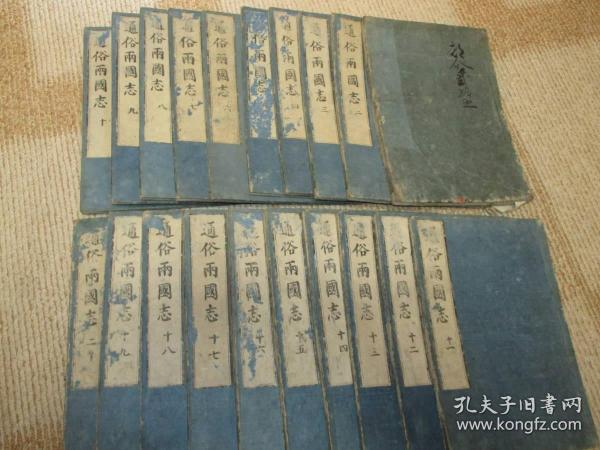 通俗兩國志 二
通俗兩國志 三
通俗兩國志 四
俗兩國志
通俗兩國志 六
通俗兩國志 七
通俗兩國志 八
通俗兩國志 九
通俗兩國志 十
俗兩國志 十一
通俗兩國志 十二
通俗兩國志 十三
通俗兩國志 十四
通俗兩國志 十五
俗兩國志 十六
通俗兩國志 十七
通俗兩國志 十八
通俗兩國志 十九
通俗兩國志 二十
孔夫子旧书网
www.kongfz.com